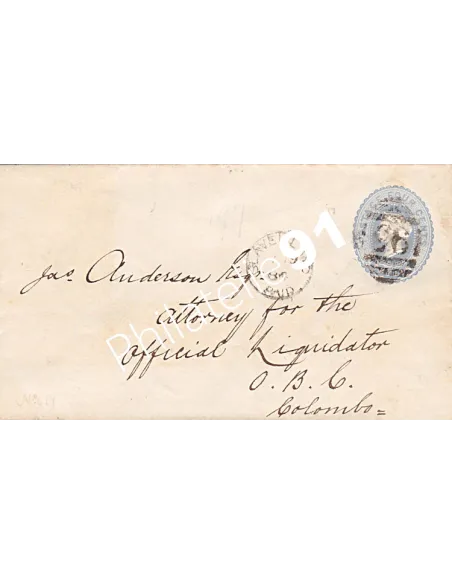 FOUR
Jas Anderson Esq
Attorney for the
Official Liquidator
O. B. C.
Colombo =
Philatelie91